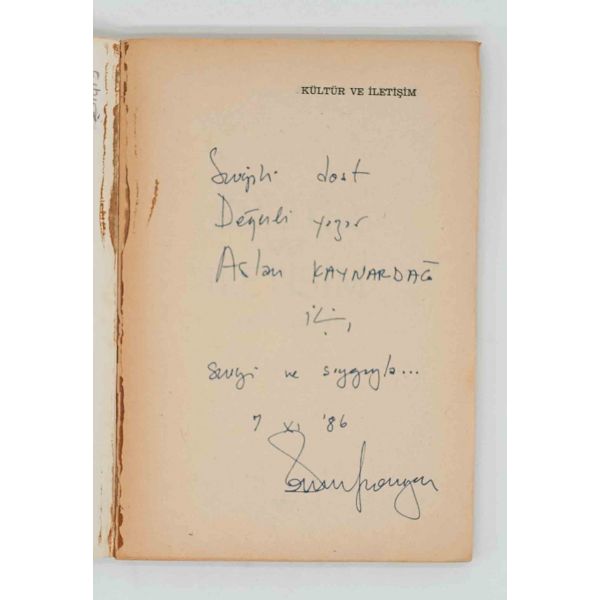 KÜLTÜR VE İLETİŞİM
Sevgili dost
Değerli yazar
Aslan KAYNARDAĞ
için,
sevgi ve saygıyla...
7 XI '86